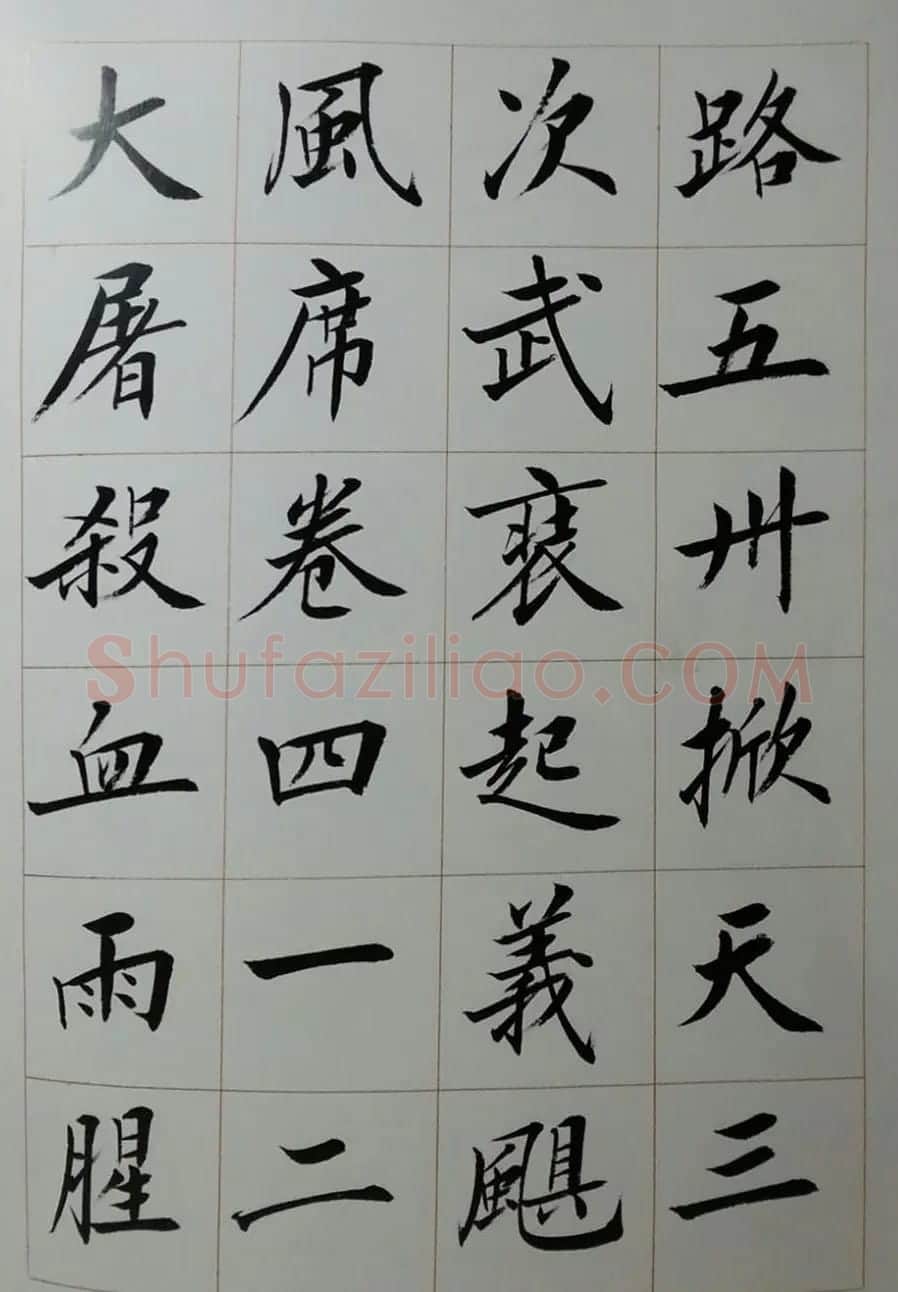 路五卅掀天三
次武裝起義颶
風席卷四一二
大屠殺血雨腥
Shufaziliao.COM